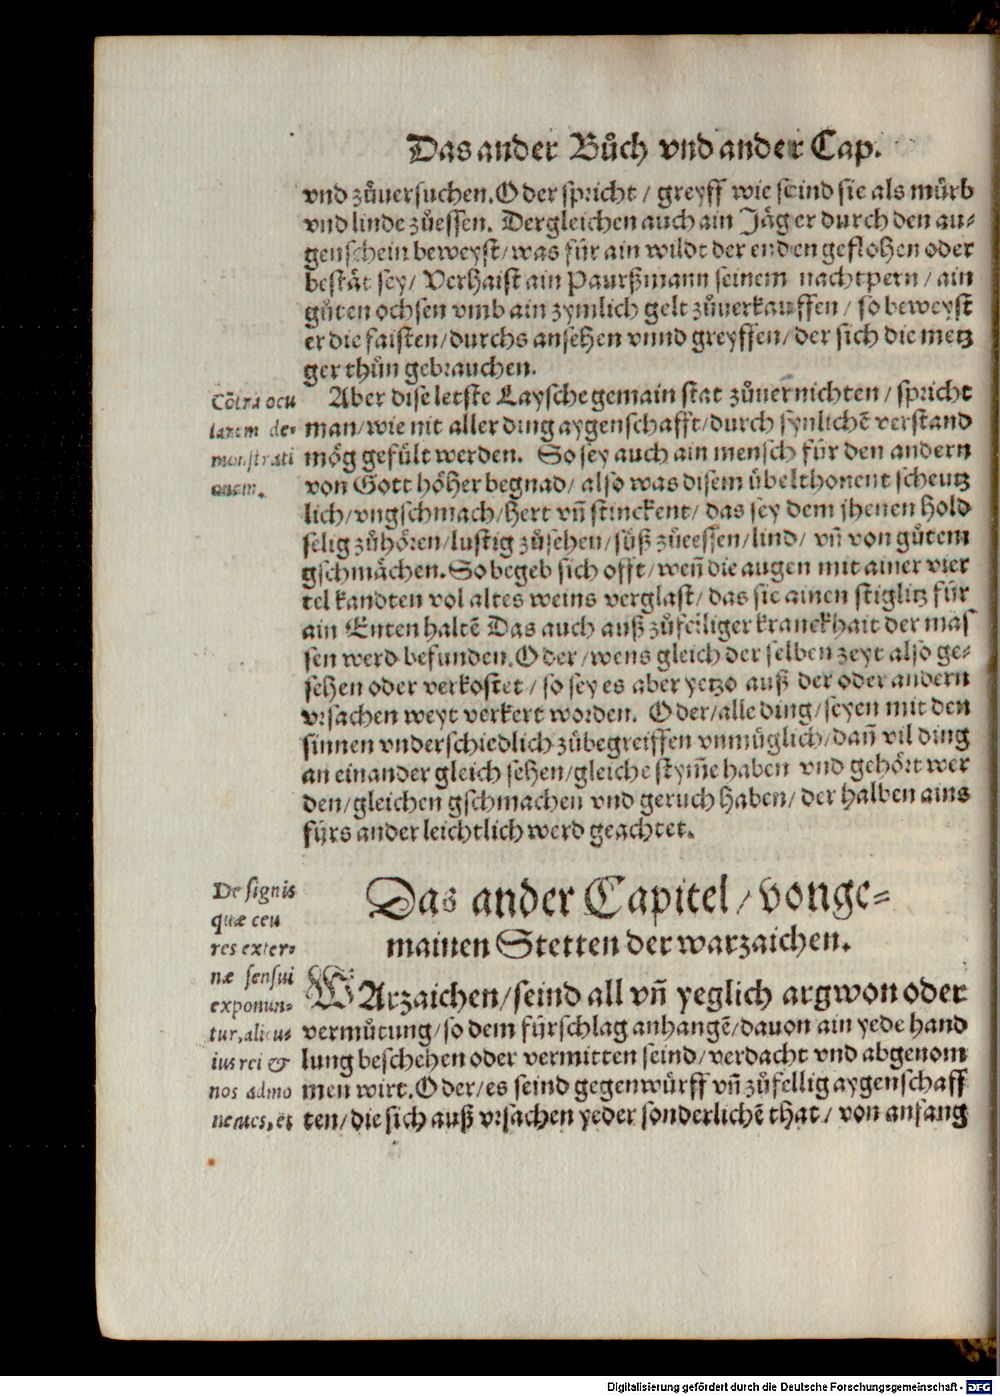 Das ander Bůch vnd ander Cap.
vnd zůuersuchen. Oder spricht / greyff wie seind sie als můrb
vnd linde zůessen. Dergleichen auch ain Jäger durch den au⸗
genschein beweyst / was für ain wildt der enden geflohen oder
beståt sey / Verhaist ain Paurßmann seinem nachtpern / ain
gůten ochsen vmb ain zymlich gelt zůuerkauffen / so beweyst
er die faisten / durchs ansehen vnnd greyffen / der sich die metz
ger thůn gebrauchen.
Aber dise letste Laysche gemain stat zůuernichten / spricht
man / wie nit aller ding aygenschafft / durch synlichē verstand
mög gefült werden. So sey auch ain mensch für den andern
von Gott höher begnad / also was disem übelthonent scheutz
lich / vngschmach / hert vn̄ stinckent / das sey dem jhenen hold
selig zůhören / lustig zůsehen / süß zůeessen / lind / vn̄ von gůtem
gschmächen. So begeb sich offt / wen̄ die augen mit ainer vier
tel kandten vol altes weins verglast / das sie ainen stiglitz für
ain Enten haltē Das auch auß zůfeiliger kranckhait der mas
sen werd befunden. Oder / wens gleich der selben zeyt also ge⸗
sehen oder verkostet / so sey es aber yetzo auß der oder andern
vrsachen weyt verkert worden. Oder / alle ding / seyen mit den
sinnen vnderschiedlich zůbegreiffen vnmüglich / dan̄ vil ding
an einander gleich sehen / gleiche stym̄e haben vnd gehört wer
den / gleichen gschmachen vnd geruch haben / der halben ains
fürs ander leichtlich werd geachtet.
Cōtra ocu
larem de⸗
monstrati
onem.
Das ander Capitel / von ge⸗
mainen Stetten der warzaichen.
WArzaichen / seind all vn̄ yeglich argwon oder
vermůtung / so dem fürschlag anhangē / dauon ain yede hand
lung beschehen oder vermitten seind / verdacht vnd abgenom
men wirt. Oder / es seind gegenwürff vn̄ zůfellig aygenschaff
ten / die sich auß vrsachen yeder sonderlichē that / von anfang
De signis
quæ ceu
res exter⸗
næ sensui
exponun⸗
tur, alicu⸗
ius rei &
nos admo
nentes, et
Digitalisierung gefördert durch die Deutsche Forschungsgemeinschaft - DFG